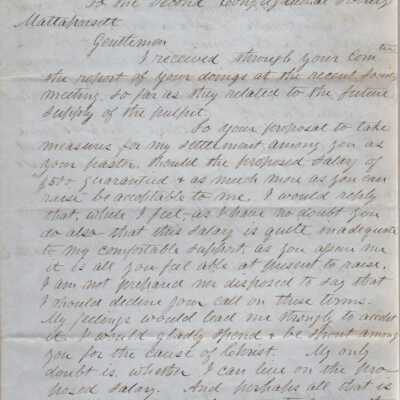 To the Second Congregational Society
Mattapoisett
Gentlemen
I received through your Com tee
the report of your doings at the recent Society
meeting, so far as they related to the future
supply of the pulpit.
To your proposal to take
measures for my settlement among you as
your pastor, should the proposed salary of
$500 guarantied & as much more as you can
raise be acceptable to me, I would reply
that, while I feel, as I have no doubt you
do also that this salary is quite inadequate
to my comfortable support, as you assure me
it is all you feel able at present to raise,
I am not prepared nor disposed to say that
I should decline your call on these terms.
My feelings would lead me strongly to accept
it. I would gladly spend & be spent among
you for the cause of Christ. My only
doubt is, whether I can live on the pro
posed salary. And perhaps all that is